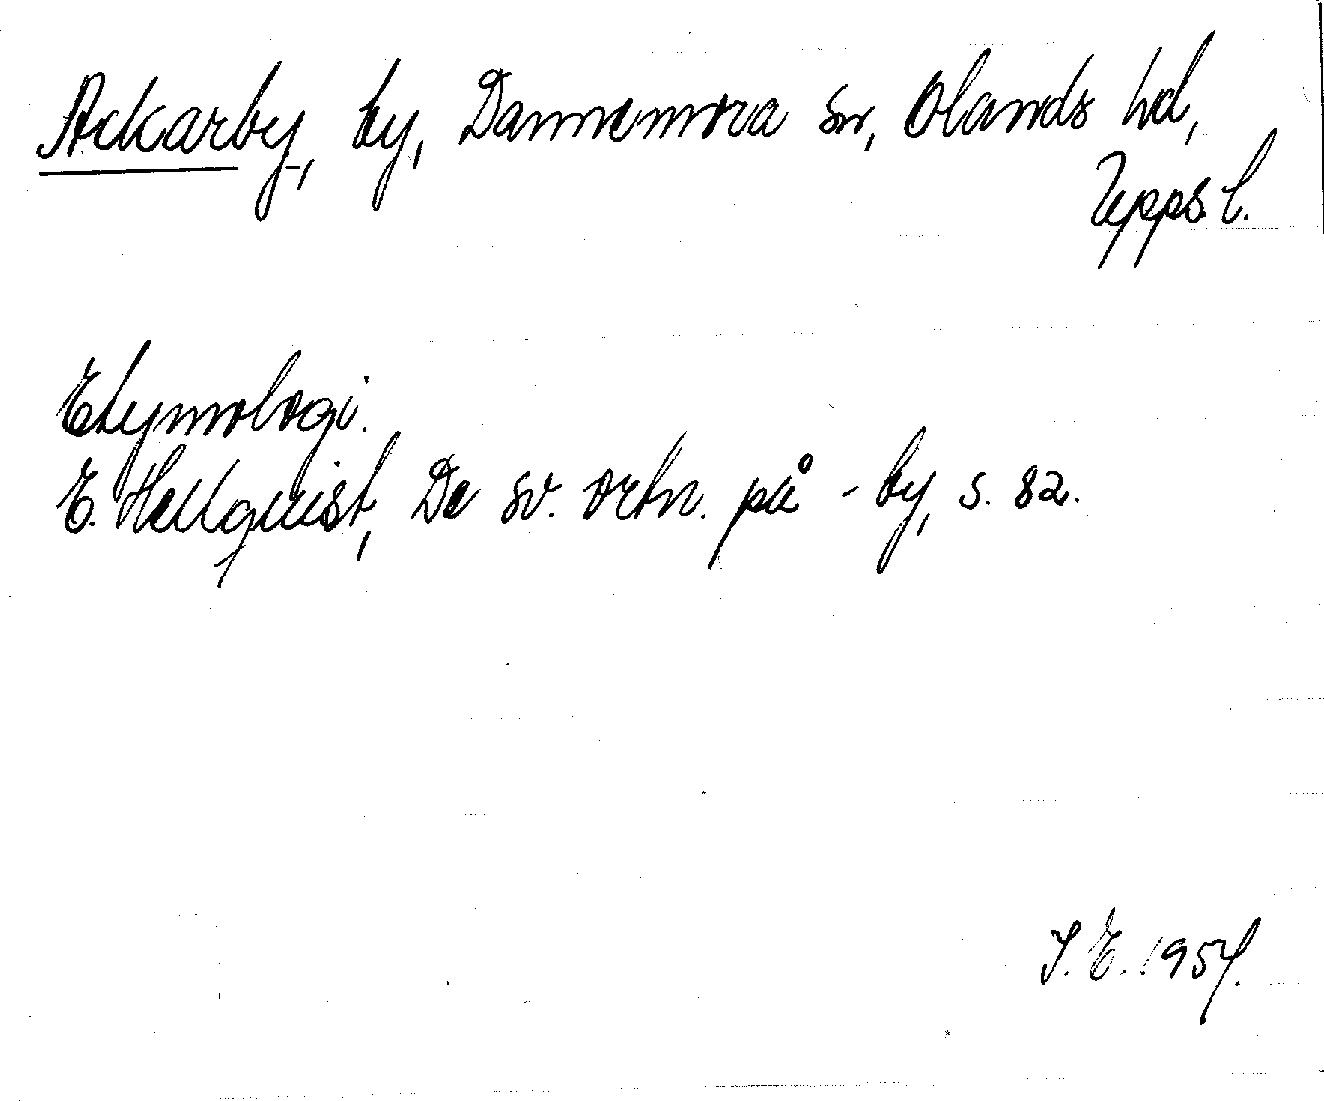 Ackarby, by, Dannemora sn, Olands hd,
Upps. l.
Etymologi.
E. Hellquist, De sv. ortn. på -by, s. 82.
I. E. 1954.